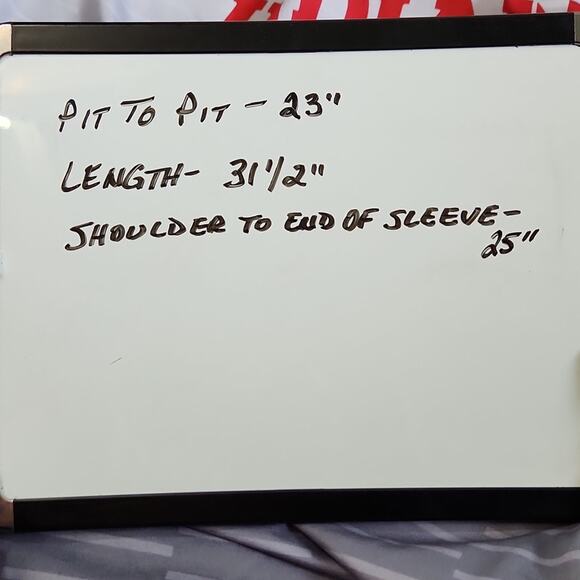 PIT TO PIT - 23"
LENGTH- 31 1/2"
SHOULDER TO END OF SLEEVE-
25"